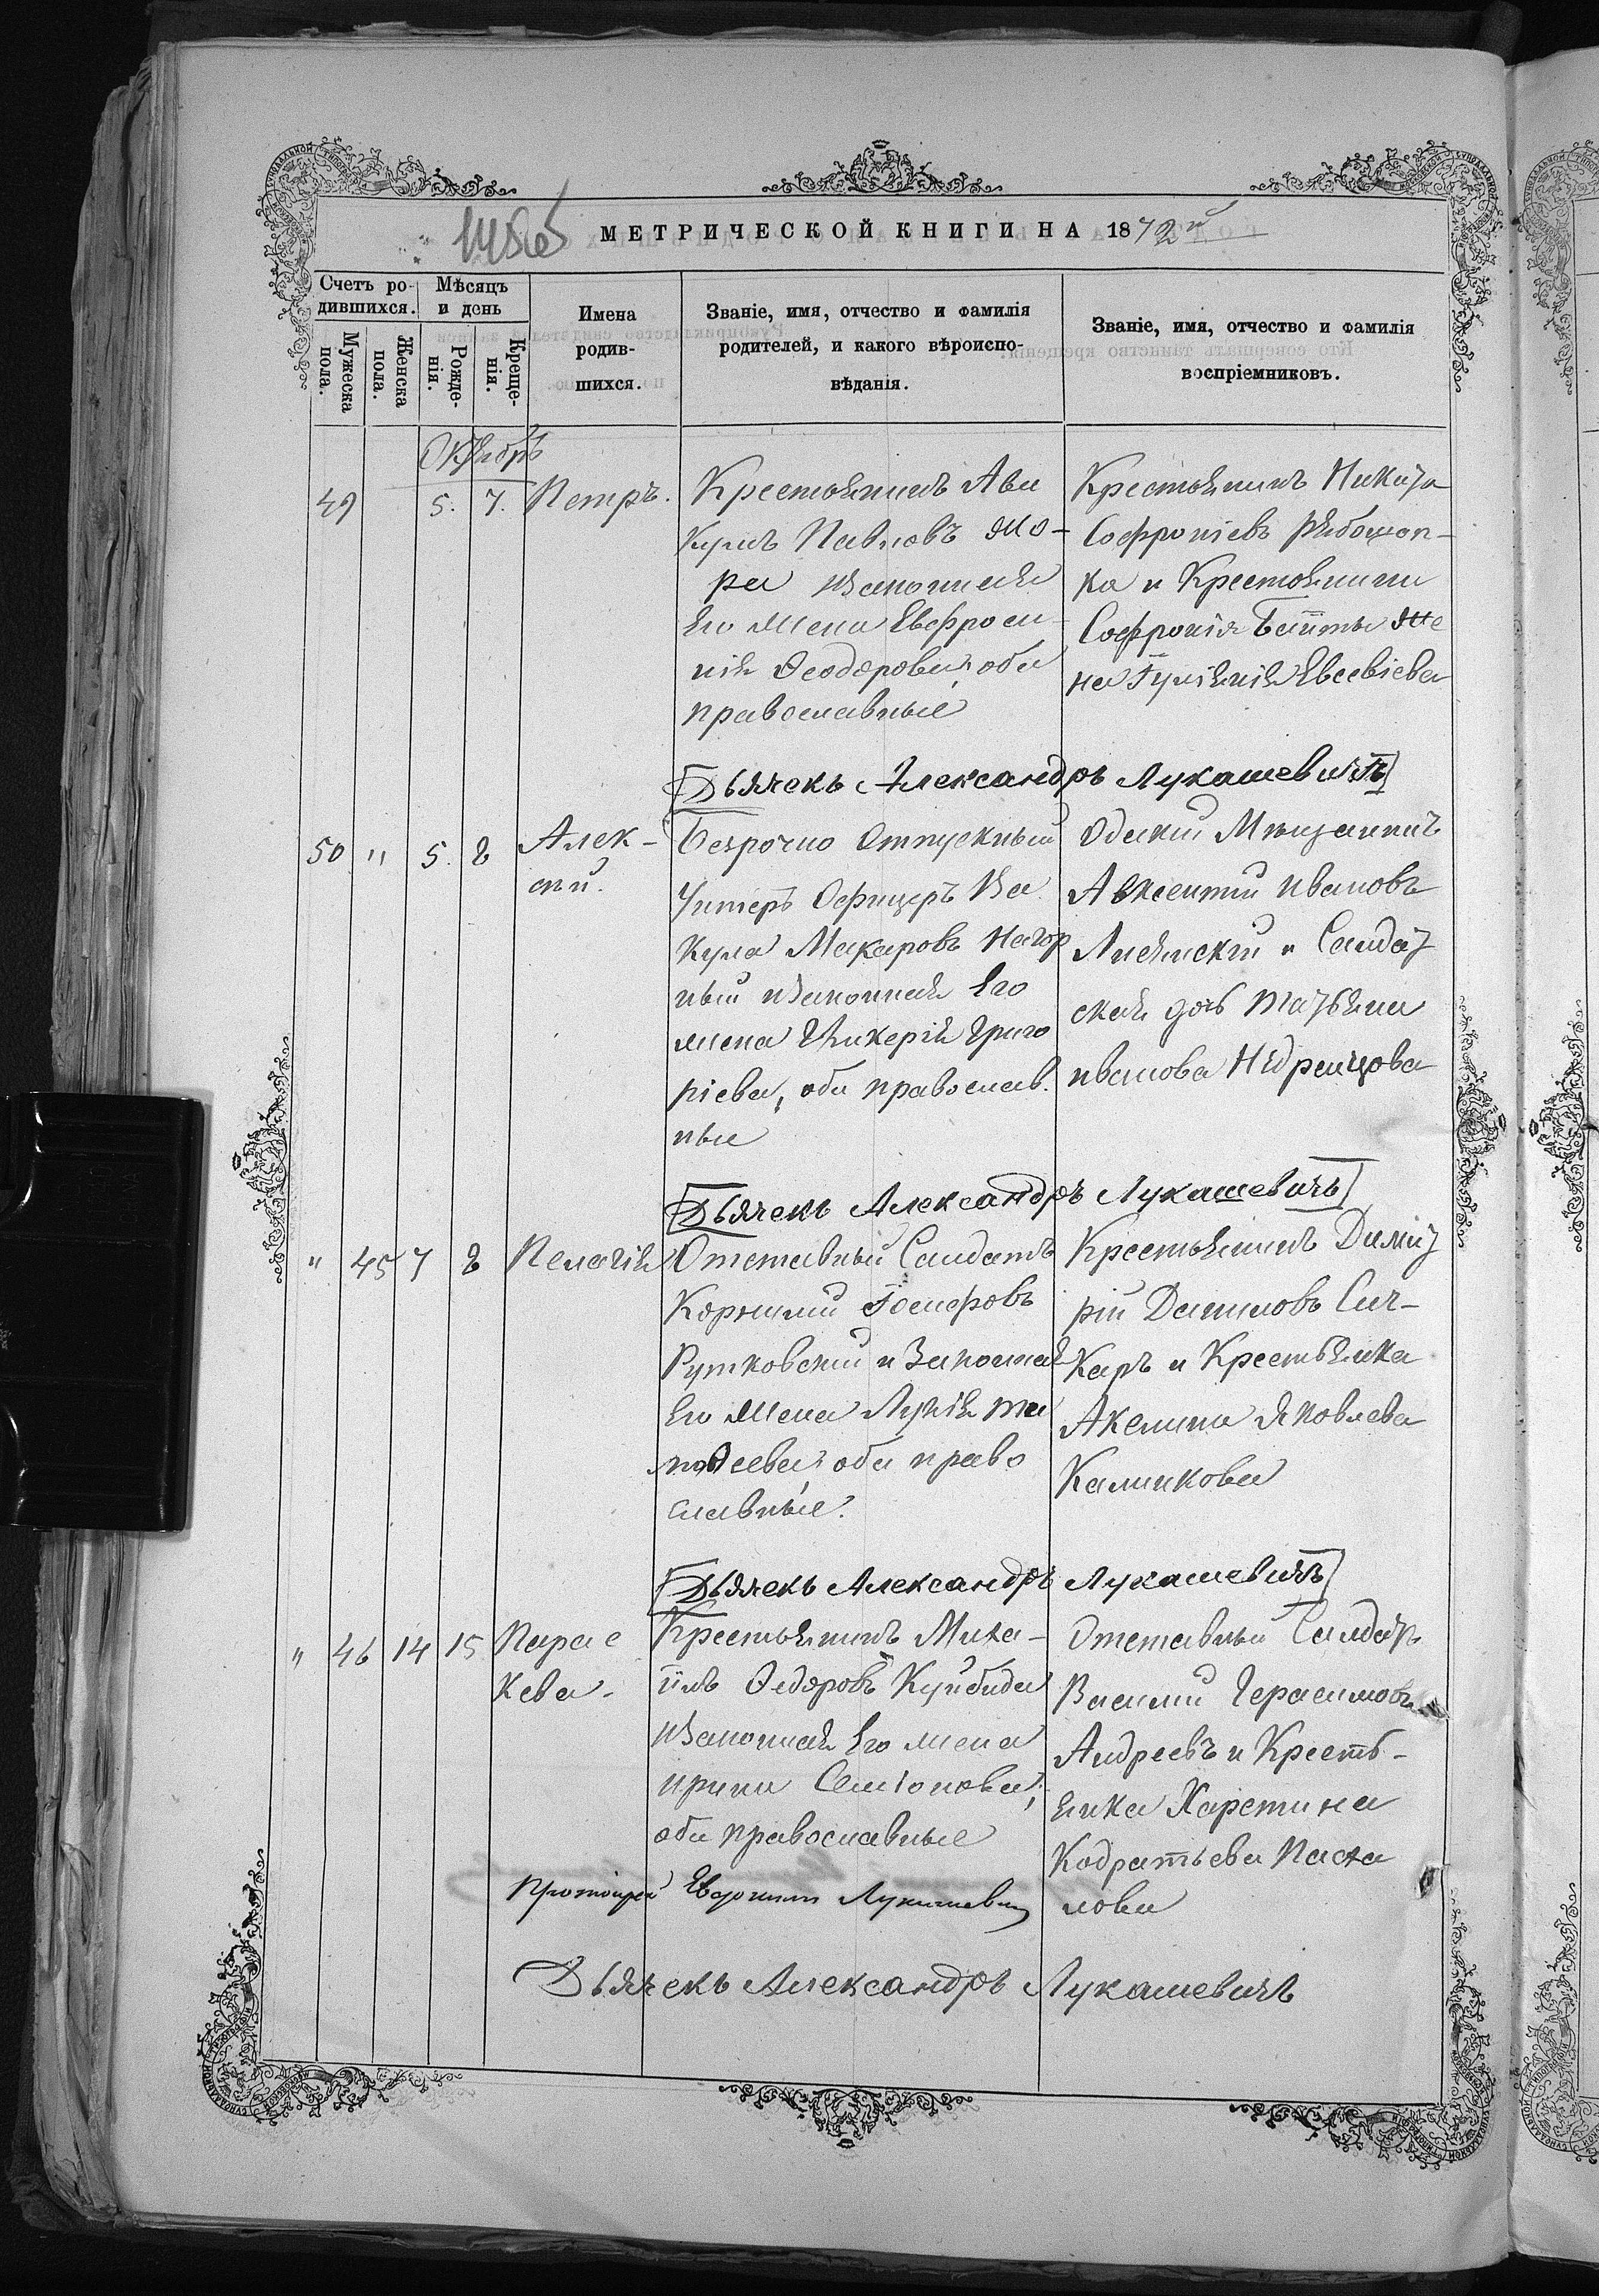 МЕТРИЧЕСКОЙ КНИГИ НА 1872й
Счетъ ро-
дившихся.
Мужеска пола.
Женска пола.
Мѣсяцъ
и день
Рожде-
нія.
Креще-
нія.
Имена
родив-
шихся.
Званіе, имя, отчество и фамилія
родителей, и какого вѣроиспо-
вѣданія.
Званіе, имя, отчество и фамилія
воспріемниковъ.
Октябрь
49 5. 7. Петръ.
Крестьянинъ Ави
кумъ Павловъ Мо-
ра и законная
Его жена Евфроси
нія Ѳеодорова, оба
православные
Крестьянинъ Никита
Софроніевъ Рябошап-
ка и Крестьянина
Софронія жe
на Гуліянія Евсевіева
Дьячекъ Александръ Лукашевичъ
50 " 5. 8 Алек-
сѣй.
Безрочно отпускный
Унтеръ Офицеръ Ва
кула Макаровъ Нагор
ный и законная Его
жена Гликерія Григо
ріева, оба православ.
ные
Одескій Мѣщанинъ
Авксентій Ивановъ
Лисянскій и Салдат
ская дочь Татьяна
Иванова
Дьячекъ Александръ Лукашевичъ
" 45 7 8 Пелагія
Отставный Салдатъ
Корнилій Іосифовъ
Рутковскій и Законная
Его жена Лукія Ти
моѳеева, оба право
славные.
Крестьянинъ Димит
рій Даниловъ Сич-
каръ и Крестьянка
Акелина Яковлева
Калникова
Дьячекъ Александръ Лукашевичъ
" 46 14 15 Парас
кева.
Крестьянинъ Миха-
илъ Ѳедоровъ Куйбида
и законная Его жена
Ирина Семіонова,
оба православные
Отставный Салдатъ
Василій Герасимовъ
Андреевъ и Кресть-
янка Харетина
Кодратьева Пасха
лова
Протоіерей Евдокимъ Лукашевич
Дьячекъ Александръ Лукашевичъ